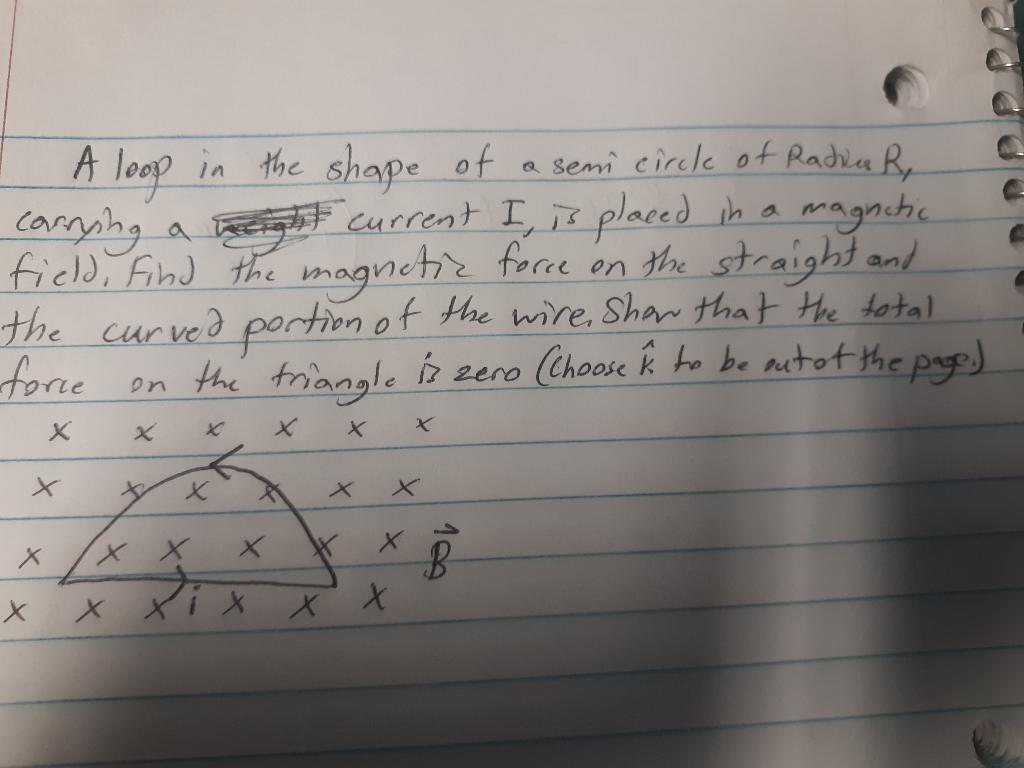 A loop in the shape of a semi circle of Radius R,
carrying a current I, is placed in a magnetic
field. Find the magnetic force on the straight and
the curved portion of the wire. Show that the total
force on the triangle is zero (Choose k̂ to be out of the page.)
x x x x x x
x x x x x x
x x x x x x B⃗
x x x i x x x